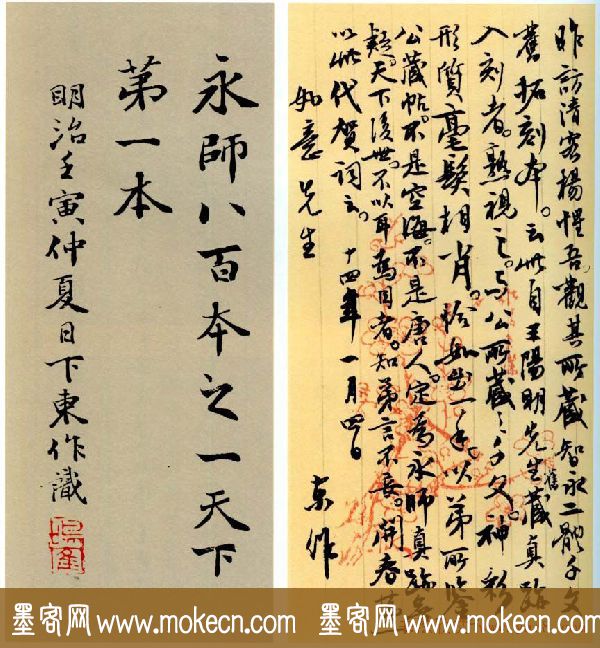 永師八百本之一天下
第一本
明治壬寅仲夏日下東作識
昨訪清客楊惺吾觀其所藏智永二體千文
舊拓刻本。云此自王陽明先生舊藏真跡
入刻者。熟視之。与公所藏之千文。神彩
形質毫髮相肖。恰如出一手。以弟所鑒
公藏帖。不是空海。不是唐人。定為永師真跡無
疑。天下後世。不以耳為目者。知弟言不妄。開春
以此代賀詞云。 十四年一月四日 東作
如意先生
墨客网 www.mokecn.com 墨客网 www.mokecn.com